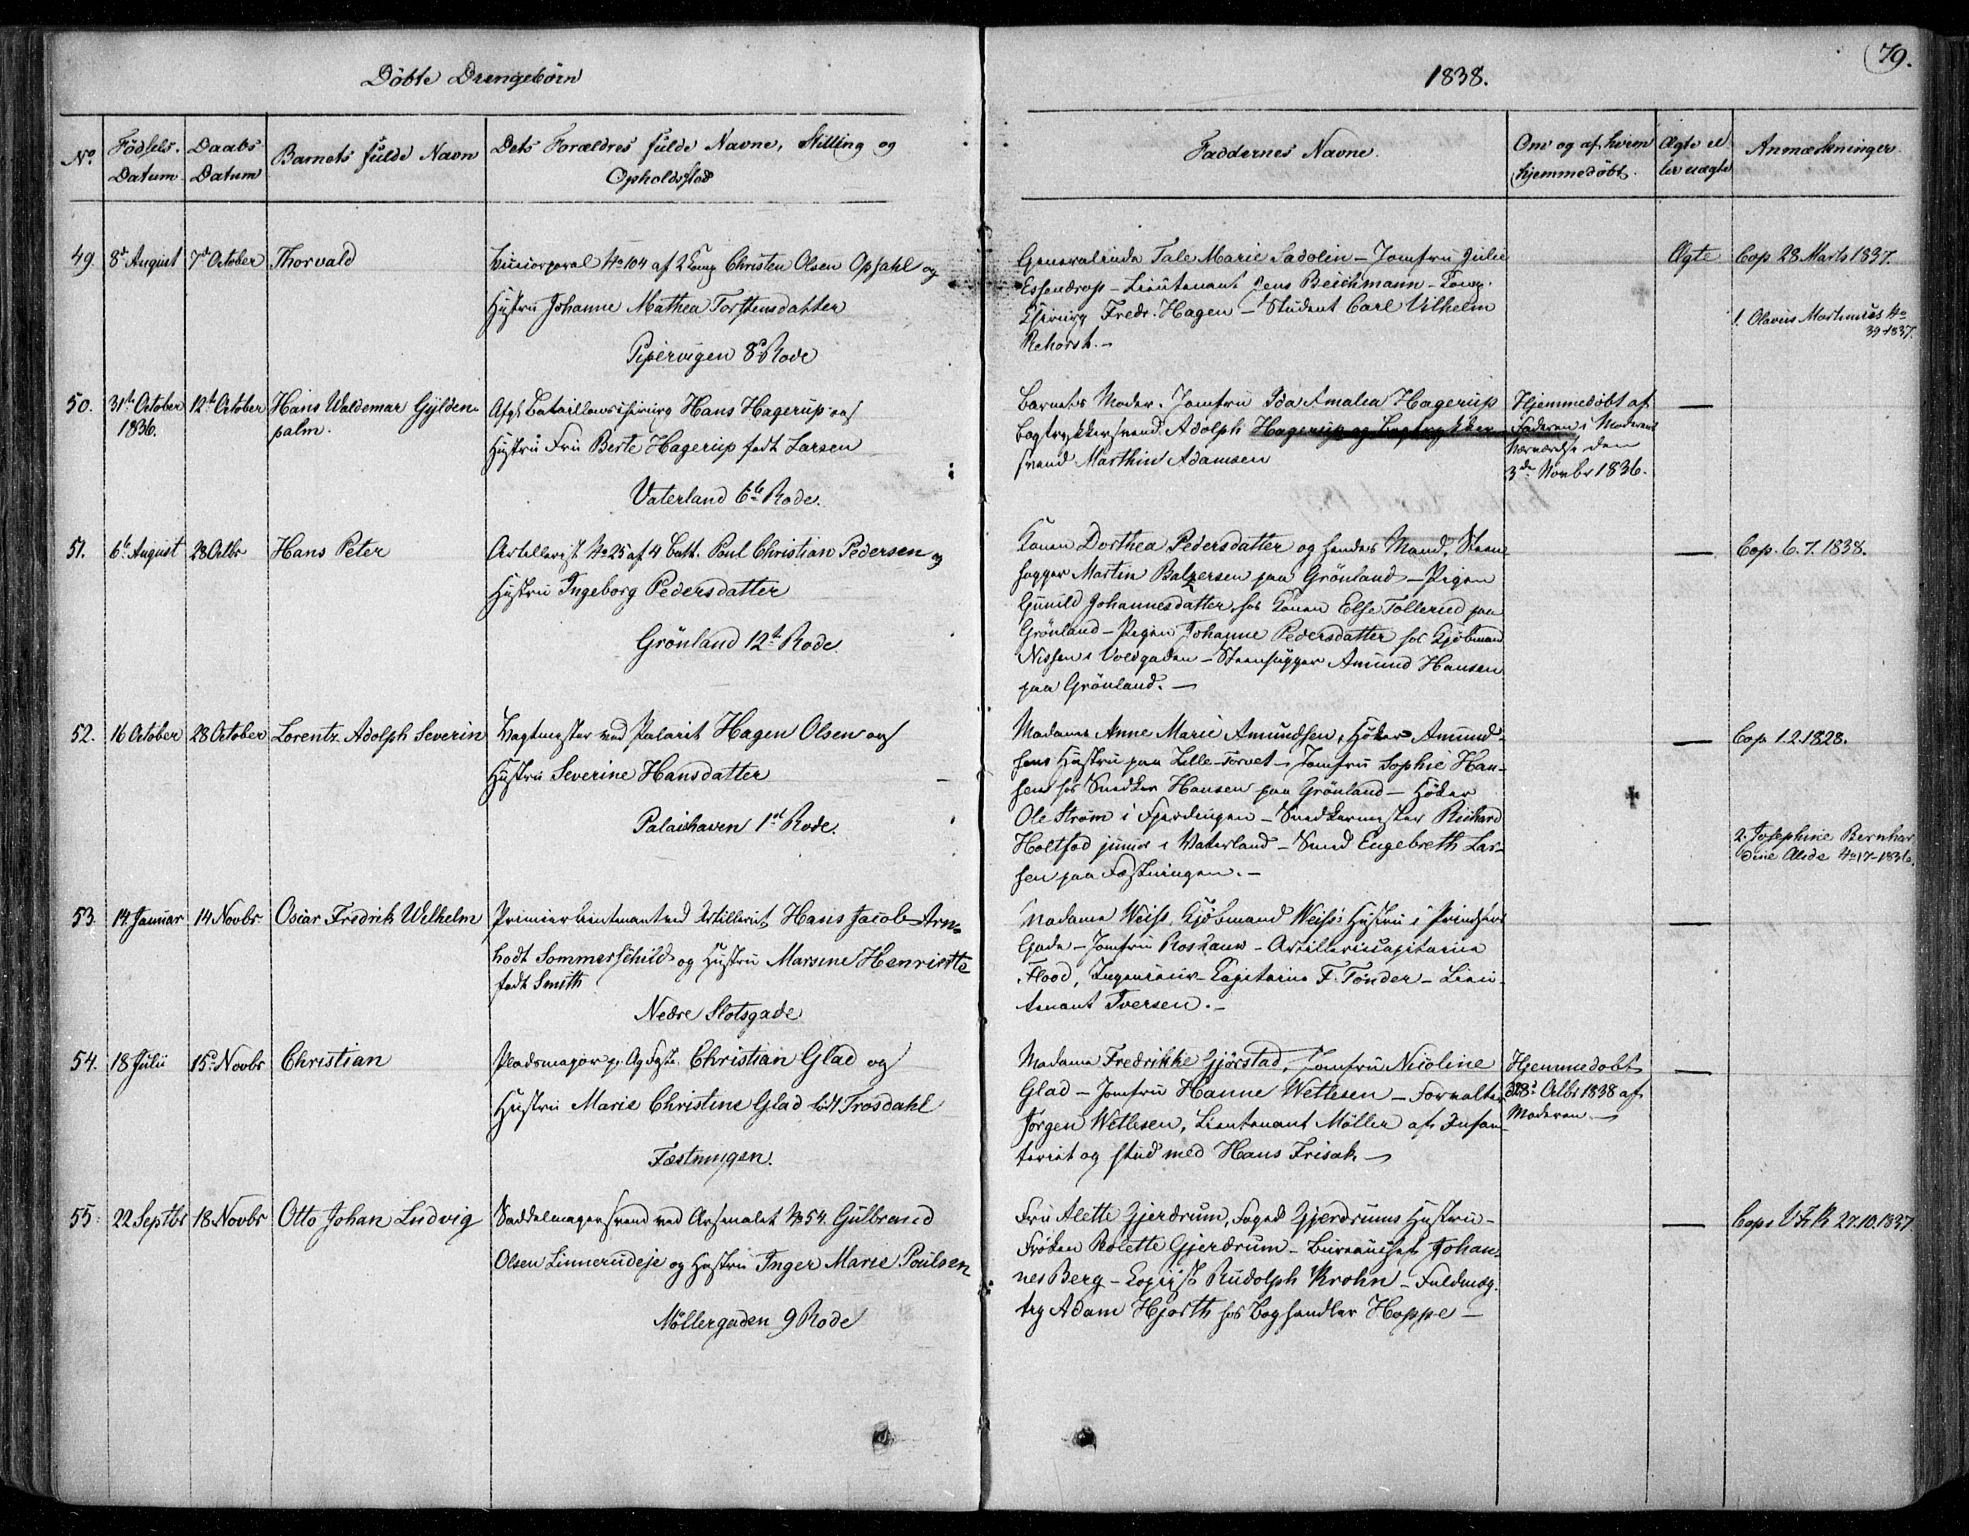 Döbte Drengebörn
1838.
79.
No.
Födsels-
Datum
Daabs
Datum
Barnets fulde Navn
Dets Forældres fulde Navne, Stilling og
Opholdssted
Faddernes Navne.
Om og af hvem
hjemmedöbt.
Ægte el-
ler uægte
Anmærkninger
49. 8d August 7d October Thorvald
No 104 af 2 Comp Christen Olsen Opsahl og
Hustru Johanne Mathea Torstensdatter
Pipervigen 8d Rode
Generalinde Tale Marie Sadolin – Jomfru Julie
Essendrop – Lieutenant Jens Beichmann – Comp.
Chirurg Fredr. Hagen – Student Carl Vilhelm
Rehorst. –
Ægte
Cop 28 Marts 1837.
1. Olavus Martinius No
39 1837.
50. 31te October 12te October Hans Waldemar Gylden-
1836.
palm.
Afg. Bataillonschirurg Hans Hagerup og
Hustru Fru Berte Hagerup født Larsen
Vaterland 6te Rode.
Barnets Moder. Jomfru Ida Amalia Hagerup
Bogtrykkersvend Adolph Hagerup og Bogtrykker
svend Marthin Adamsen
Hjemmedöbt af
Faderen i Moderens
Nærværelse den
3de Novbr 1836.
—
51. 6te August 28 Octbr Hans Peter
Artillerist No 25 af 4 Batt. Poul Christian Pedersen og
Hustru Ingeborg Pedersdatter
Grönland 12te Rode.
Konen Dorthea Pedersdatter og hendes Mand, Steen-
hugger Martin Balzersen paa Grönland – Pigen
Gunild Johannesdatter hos Konen Else Tollerud paa
Grönland – Pigen Johanne Pedersdatter hos Kjöbmand
Nissen i Voldgaden – Steenhugger Amund Hansen
paa Grönland. –
—
Cop. 6. 7. 1838.
52. 16 October 28 October Lorentz Adolph Severin
Vagtmester ved Palaiet Hagen Olsen og
Hustru Severine Hansdatter
Palaishaven 1ste Rode.
Madame Anne Marie Amundsen, Höker Amund-
sens Hustru paa Lille-Torvet – Jomfru Sophie Han-
sen hos Snedker Hansen paa Grönland – Höker
Ole Ström i Fjerdingen – Snedkermester Richard
Holtfod junior i Vaterland – Svend Engebreth Lar-
sen paa Fæstningen. –
—
Cop 1.2.1828.
2. Josephine Bernhar
dine Alide No 17–1836.
53. 14 Januar 14 Novbr Oscar Fredrik Wilhelm
Premierlieutenant ved Artilleriet Hans Jacob Arn-
hodt Sommerschild og Hustru Marsine Henriette
født Smith
Nedre Slotsgade
Madame Weiss, Kjöbmand Weiss's Hustru i Prindsens
Gade – Jomfru – Artilleriecapitaine
Flood, Ingenieur-Capitaine F. Tönder – Lieu-
tenant Iversen. –
—
54. 18 Julii 15de Novbr Christian
Pladsmajor Christian Glad og
Hustru Marie Christine Glad född Trosdahl
Fæstningen.
Madame Fredrikke Gjörstad, Jomfru Nicoline
Glad – Jomfru Hanne Wetlesen – Forvalter
Jörgen Wetlesen, Lieutenant Möller af Infan-
teriet og stud med Hans Frisak –
Hjemmedöbt
28de Octbr 1838 af
Moderen. –
—
55. 22 Septbr 18 Novbr Otto Johan Ludvig
Saddelmagersvend ved Arsenalet No 54. Gulbrand
Olsen Linnerudeje og Hustru Inger Marie Poulsen
Möllergaden 9 Rode
Fru Alette Gjerdrum, Foged Gjerdrums Hustru –
Fröken Rolette Gjerdrum – Bureauchef Johan-
nes Berg – Copiist Rudolph Krohn – Fuldmæg-
tig Adam Hjorth hos Boghandler Hoppe –
—
Cop. V.F.K. 27.10.1837